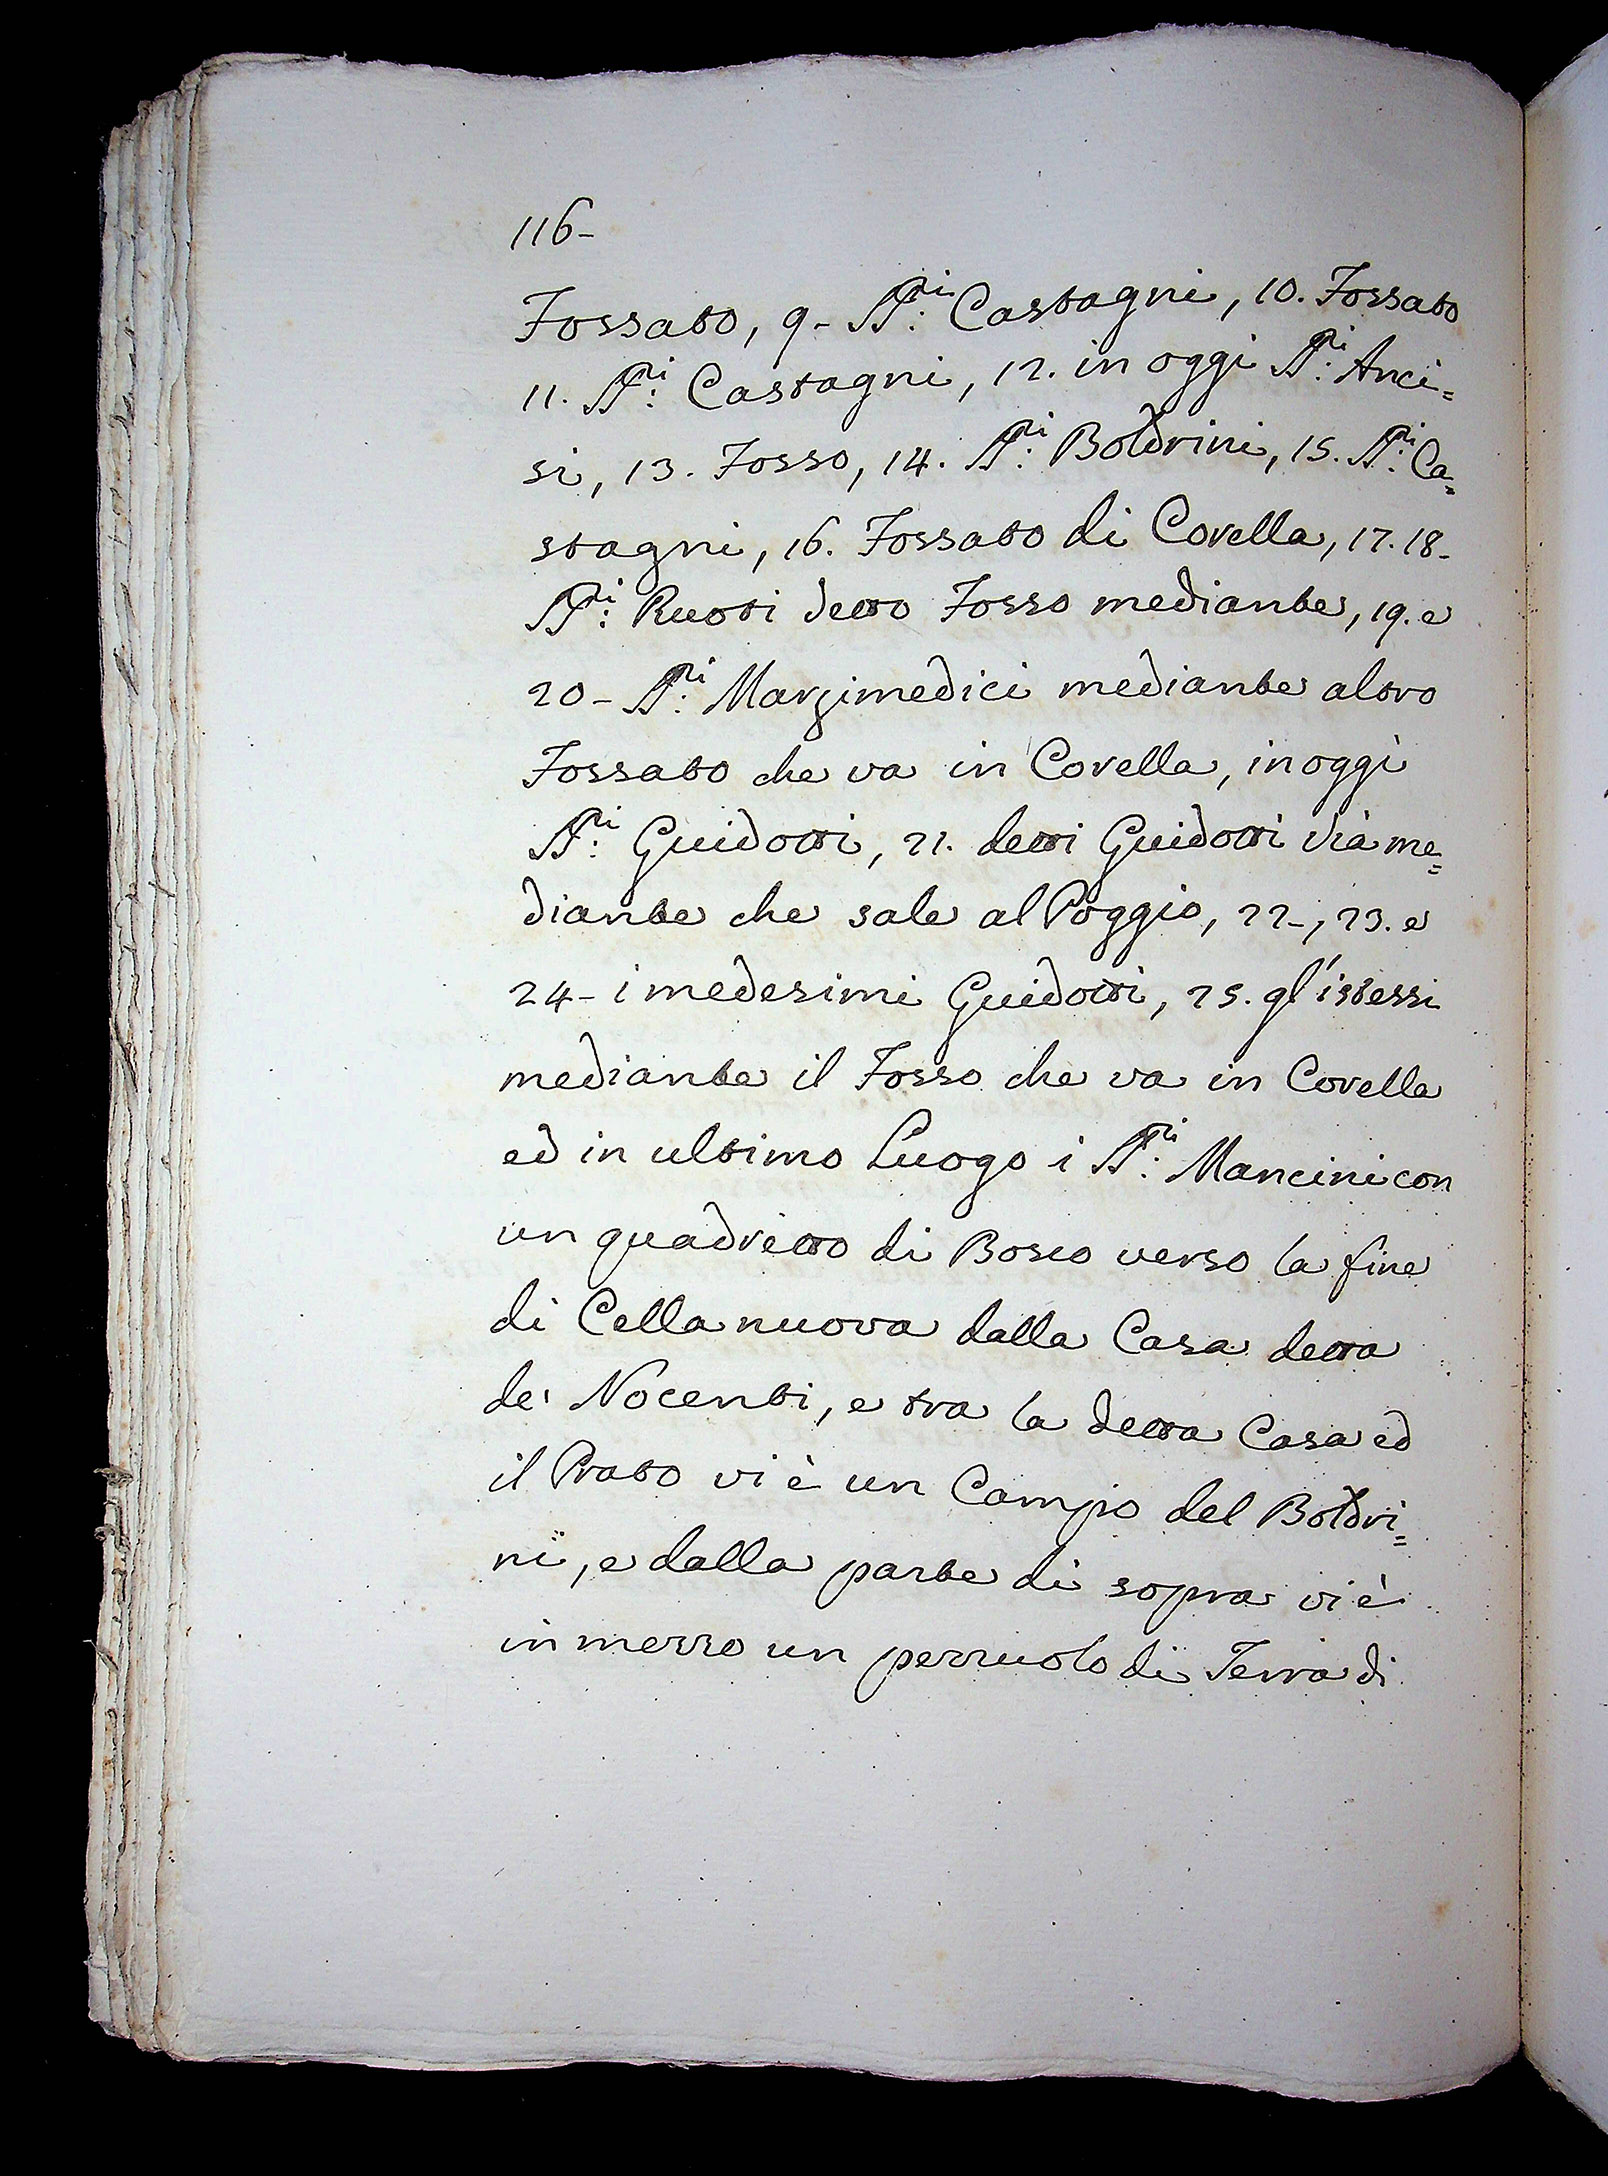 116-
Fossato, 9- SS.ri Castagni, 10. Fossato
11. SS.ri Castagni, 12. in oggi SS.ri Anci=
si, 13. Fosso, 14. SS.ri Boldrini, 15. SS.ri Ca=
stagni, 16. Fossato di Corella, 17. 18-
SS.ri Ruoti detto Fosso mediante, 19. e
20- SS.ri Marzimedici mediante altro
Fossato che va in Corella, in oggi
SS.ri Guidotti, 21. detti Guidotti Via me=
diante che sale al Poggio, 22-, 23. e
24- i medesimi Guidotti, 25. gl'istessi
mediante il Fosso che va in Corella
ed in ultimo Luogo i SS.ri Mancini con
un quadretto di Bosco verso la fine
di Cella nuova dalla Casa detta
de' Nocenti, e tra la detta Casa ed
il Prato vi è un Campo del Boldri=
ni, e dalla parte di sopra vi è
in mezzo un pezzuolo di Terra di